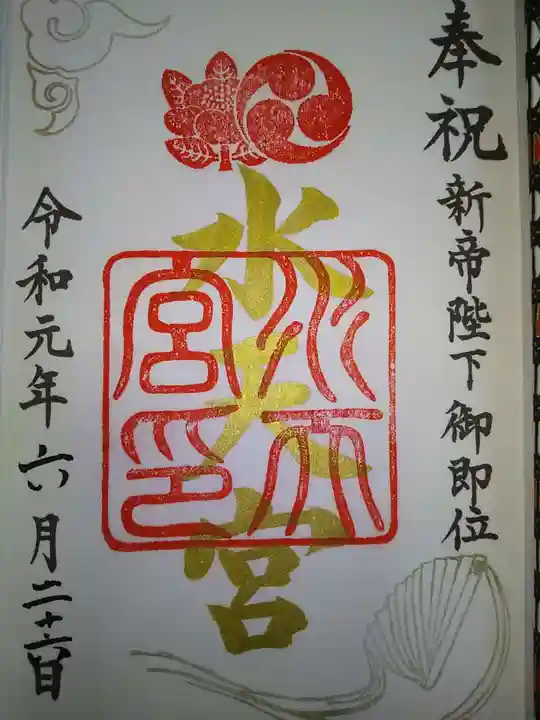 奉祝
新帝陛下御即位
水天宮
水天宮印
令和元年六月二十六日